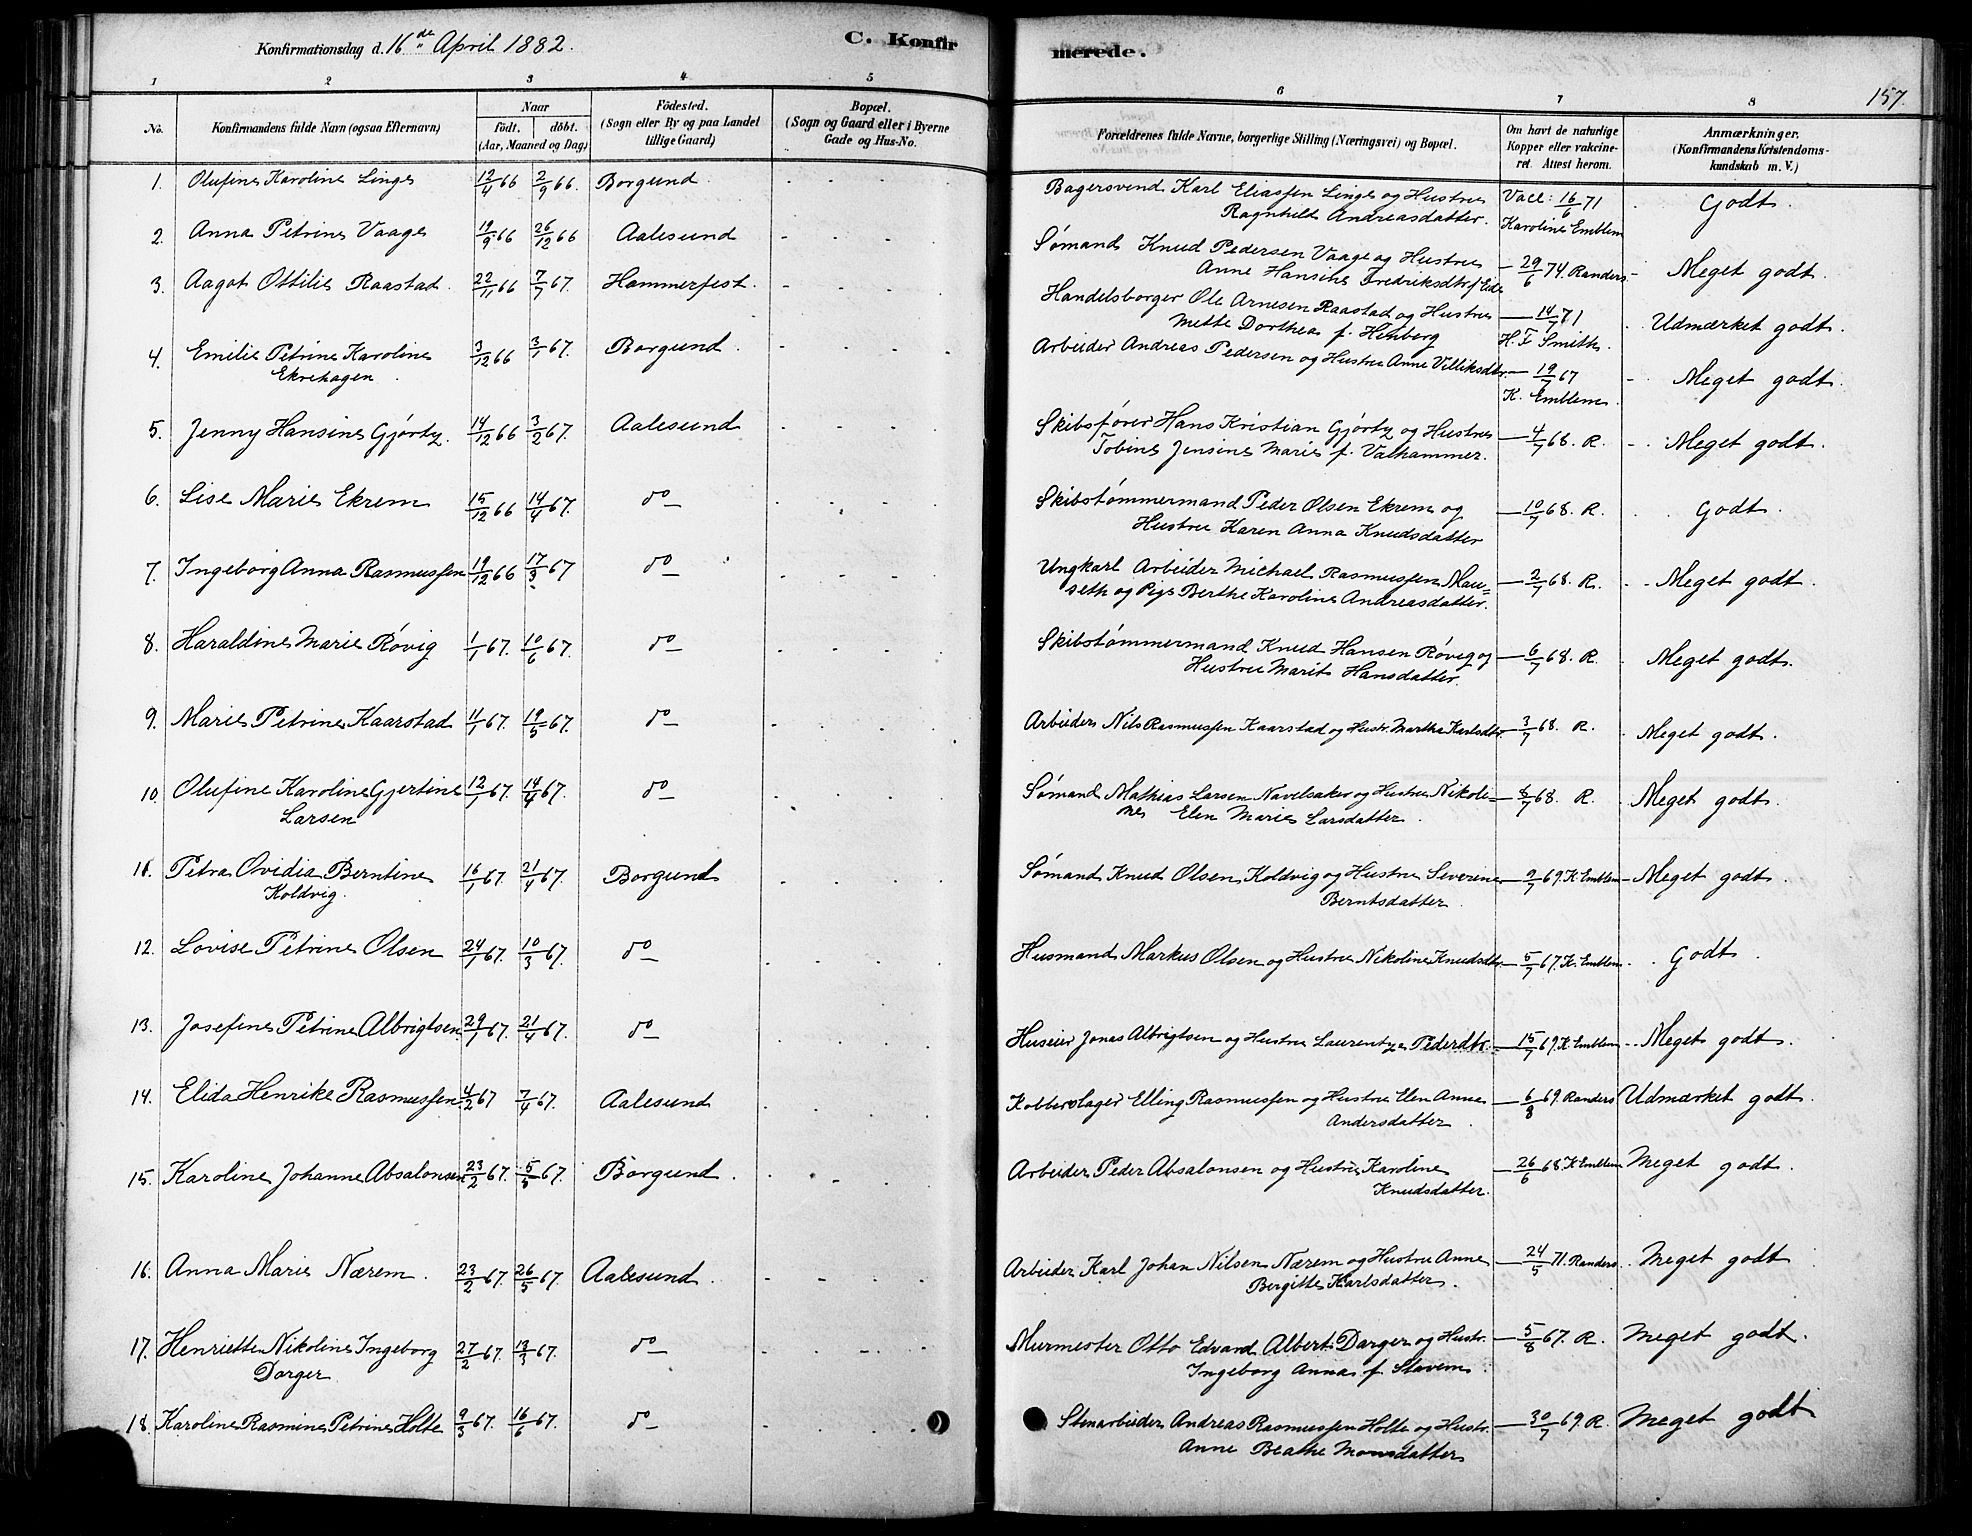 Konfirmationsdag d. 16de April 1882. C. Konfirmerede. 157.
1 2 3 4 5 6 7 8
No. Konfirmandens fulde Navn (ogsaa Efternavn) Naar født. døbt. (Aar, Maaned og Dag) Fødested. (Sogn eller By og paa Landet tillige Gaard) Bopæl. (Sogn og Gaard eller i Byerne Gade og Hus-No. Forældrenes fulde Navne, borgerlige Stilling (Næringsvei) og Bopæl. Om havt de naturlige Kopper eller vakcineret. Attest herom. Anmærkninger. (Konfirmandens Kristendomskundskab m. V.)
1. Olufine Karoline Linge 12/4 66 2/9 66. Borgund. Bagersvend Karl Eliassen Linge og Hustru Vacc: 16/6 71 Godt.
Ragnhilt Andreasdatter. Karoline Emblem
2. Anna Petrine Vaage 19/9 66 26/12 66 Aalesund Sømand Knud Pedersen Vaage og Hustru — 29/6 74. Randers Meget godt.
Anne Hansine Fredriksdtr f. Eide
3. Aagot Ottilie Raastad. 22/11 66 7/7 67. Hammerfest. Handelsborger Ole Arnesen Raastad og Hustru — 14/7 71 Udmærket godt.
Mette Dorthea f. Henberg H. F. Smith.
4. Emilie Petrine Karoline 3/12 66 3/1 67. Borgund. Arbeider Andreas Pedersen og Hustru Anne Villiksdtr. — 19/7 67 Meget godt.
Ekrehagen. K. Emblem.
5. Jenny Hansine Gjørtz. 14/12 66 3/2 67. Aalesund Skibsfører Hans Kristian Gjørtz og Hustru — 4/7 68. R. Meget godt.
Tobine Jensine Marie f. Valhammer.
6. Lise Marie Ekrem 15/12 66 14/4 67. do Skibstømmermand Peder Olsen Ekrem og — 10/7 68. R. Godt.
Hustru Karen Anna Knudsdatter
7. Ingeborg Anna Rasmussen 19/12 66 17/3 67 do Ungkarl Arbeider Michael Rasmussen Mau= — 2/7 68. R. Meget godt.
seth og Pige Berthe Karoline Andreasdatter.
8. Haraldine Marie Røvig 1/1 67. 10/6 67. do Skibstømmermand Knud Hansen Røvig og — 6/7 68. R. Meget godt.
Hustru Marit Hansdatter.
9. Marie Petrine Kaarstad 11/1 67. 19/5 67. do Arbeider Nils Rasmussen Kaarstad og Hustr. Martha Karlsdtr. — 3/7 68. R. Meget godt.
10. Olufine Karoline Gjertine 12/1 67. 14/4 67. do Sømand Mathias Larsen Navelsaker og Hustru Nikoli= — 6/7 68. R. Meget godt.
Larsen ne Elen Marie Larsdatter.
11. Petra Ovidia Berntine 16/1 67. 21/4 67. Borgund Sømand Knud Olsen Koldvig og Hustru Severine — 9/7 69. K Emblem Meget godt.
Koldvig. Berntsdatter.
12. Lovise Petrine Olsen 24/1 67. 10/3 67. do Husmand Markus Olsen og Hustru Nikoline Knudsdtr. — 5/7 67. K. Emblem Godt.
13. Josefine Petrine Albrigtsen 29/1 67. 21/4 67. do Huseier Jonas Albrigtsen og Hustru Laurentze Pederdtr. — 15/7 69. K Emblem Meget godt.
14. Elida Henrike Rasmussen 4/2 67 7/4 67. Aalesund Kobberslager Elling Rasmussen og Hustru Elen Anne — 6/8 69. Randers Udmærket godt.
Andersdatter.
15. Karoline Johanne Absalonsen 23/2 67. 5/5 67. Borgund. Arbeider Peder Absalonsen og Hustru Karoline — 26/6 68. K Emblem Meget godt.
Knudsdatter.
16. Anna Marie Nærem. 23/2 67. 26/5 67. Aalesund. Arbeider Karl Johan Nilsen Nærem og Hustru Anne — 24/5 71. Randers. Meget godt
Bergitte Karlsdatter.
17. Henriette Nikoline Ingeborg 27/2 67. 13/3 67. do Murmester Otto Edvard Albert Darger og Hustr. — 5/8 67. R. Meget godt.
Darger Ingeborg Anna f. Stavem.
18. Karoline Rasmine Petrine Holte 9/3 67. 16/6 67. do Stenarbeider Andreas Rasmussen Holte og Hustr. — 30/7 69 R. Meget godt
Anne Beathe Monsdatter